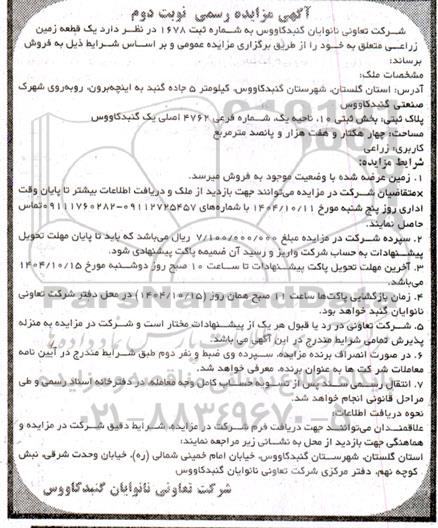 آگهی مزایده رسمی نوبت دوم
شرکت تعاونی نانوایان گنبدکاووس به شماره ثبت ۱۶۷۸ در نظر دارد یک قطعه زمین
زراعی متعلق به خود را از طریق برگزاری مزایده عمومی و بر اساس شرایط ذیل به فروش
برساند:
مشخصات ملک:
آدرس: استان گلستان، شهرستان گنبدکاووس، کیلومتر ۵ جاده گنبد به اینچه‌برون، روبه‌روی شهرک
صنعتی گنبدکاووس
پلاک ثبتی: بخش ثبتی ۱۰، ناحیه یک، شماره فرعی ۴۷۶۲ اصلی یک گنبدکاووس
مساحت: چهار هکتار و هفت هزار و پانصد مترمربع
کاربری: زراعی
شرایط مزایده:
۱. زمین عرضه شده با وضعیت موجود به فروش میرسد.
×متقاضیان شرکت در مزایده می‌توانند جهت بازدید از ملک و دریافت اطلاعات بیشتر تا پایان وقت
اداری روز پنج شنبه مورخ ۱۴۰۴/۱۰/۱۱ با شماره‌های ۰۹۱۱۲۷۲۵۴۵۷-۰۹۱۱۱۷۶۰۲۸۲تماس
حاصل نمایند.
۲. سپرده شرکت در مزایده مبلغ ۷/۱۰۰/۰۰۰/۰۰۰ ریال می‌باشد که باید تا پایان مهلت تحویل
پیشنهادات به حساب شرکت واریز و رسید آن ضمیمه پاکت پیشنهادی شود.
۳. آخرین مهلت تحویل پاکت پیشنهادات تا ساعت ۱۰ صبح روز دوشنبه مورخ ۱۴۰۴/۱۰/۱۵
می‌باشد.
۴. زمان بازگشایی پاکت‌ها ساعت ۱۱ صبح همان روز (۱۴۰۴/۱۰/۱۵) در محل دفتر شرکت تعاونی
نانوایان گنبد خواهد بود.
۵. شرکت تعاونی در رد یا قبول هر یک از پیشنهادات مختار است و شرکت در مزایده به منزله
پذیرش تمامی شرایط مندرج در این آگهی می باشد.
۶. در صورت انصراف برنده مزایده، سپرده وی ضبط و نفر دوم طبق شرایط مندرج در آیین نامه
معاملات شرکت ها به عنوان برنده، معرفی خواهد شد.
۷. انتقال رسمی سند پس از تسویه حساب کامل وجه معامله، در دفترخانه اسناد رسمی و طی
مراحل قانونی انجام خواهد شد.
نحوه دریافت اطلاعات:
علاقمندان می‌توانند جهت دریافت فرم شرکت در مزایده، شرایط دقیق شرکت در مزایده و
هماهنگی جهت بازدید از محل به نشانی زیر مراجعه نمایند:
استان گلستان، شهرستان گنبدکاووس، خیابان امام خمینی شمالی (ره)، خیابان وحدت شرقی، نبش
کوچه نهم، دفتر مرکزی شرکت تعاونی نانوایان گنبدکاووس
شرکت تعاونی نانوایان گنبدکاووس
ParsNamadData
۰۲۱-۸۸۳۴۹۶۷۰-۵